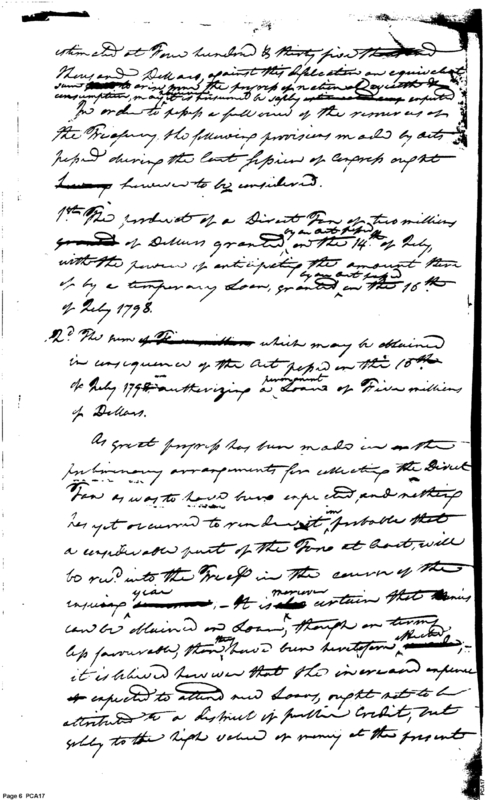 estimated at Four hundred & thirty five thousand
Thousand Dollars, against this deduction an equivalent
sum to arise from the progress of national growth &
consumption, may it is presumed be safely expected
In order to possess a full view of the resources of
the Treasury, the following provisions made by acts
passed during the last Session of Congress ought
however to be considered.
1st The product of a Direct Tax of two millions
by an act passed
of Dollars granted on the 14th of July,
with the power of anticipating the amount there
by an act passed
of by a temporary Loan, granted on the 16th
of July 1798.
2d The sum which may be obtained
in consequence of the Act passed on the 16th
permanent
of July 1798 authorizing a Loan of Five millions
of Dollars.
As great progress has been made in the
preliminary arrangements for collecting the Direct
Tax as was to have been expected, and nothing
has yet occurred to render it improbable that
a considerable part of the Tax at least, will
be recd into the Treasy in the course of the
year moreover
ensuing - It is certain that Monies
can be obtained on Loan, though on terms
less favourable, than they have been heretofore
it is believed however that the increased expence
expected to attend new Loans, ought not to be
attributed to a distrust of public Credit, but
solely to the high value of money at the present
Page 6 PCA17
PCA17